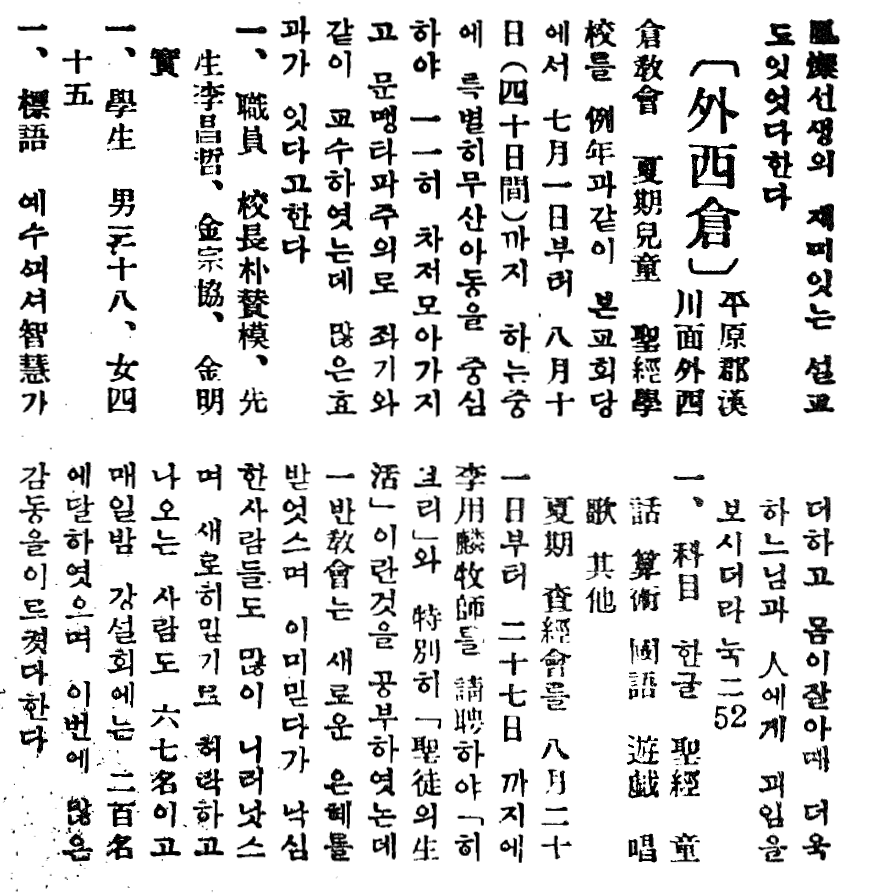 선생의 재미잇는 설교
도잇엇다한다
〔外西倉〕
平原郡漢
川面外西
倉敎會 夏期兒童 聖經學
校를 例年과같이 본교회당
에서 七月一日부터 八月十
日(四十日間)까지 하는중
에 특별히무산아동을 중심
하야 一一히 차저모아가지
고 문맹타파주의로 좌기와
같이 교수하엿는데 많은效
과가 잇다고한다
一、 職員 校長朴賛模、先
生李昌哲、金宗協、金明
實
一、學生 男三十八、女四
十五
一、標語 예수여셔智慧가
더하고 몸이잘아매 더욱
하느님과 人에게 괴임을
보시더라눅二52
一、科目 한글 聖經 童
話 算術 國語 遊戱 唱
歌 其他
夏期 査經會를 八月二十
一日부터 二十七日 까지에
李用麟牧師를 請聘하야「히
브리」와 特別히「聖徒의生
活」이란것을 공부하엿는데
一반敎會는 새로운 은혜를
받엇스며 이미믿다가 낙심
한사람들도 많이 니러낫스
며 새로히믿기로 허락하고
나오는 사람도 六七名이고
매일밤 강설회에는 二百名
에달하엿으며 이번에 많은
감동을이르켯다한다